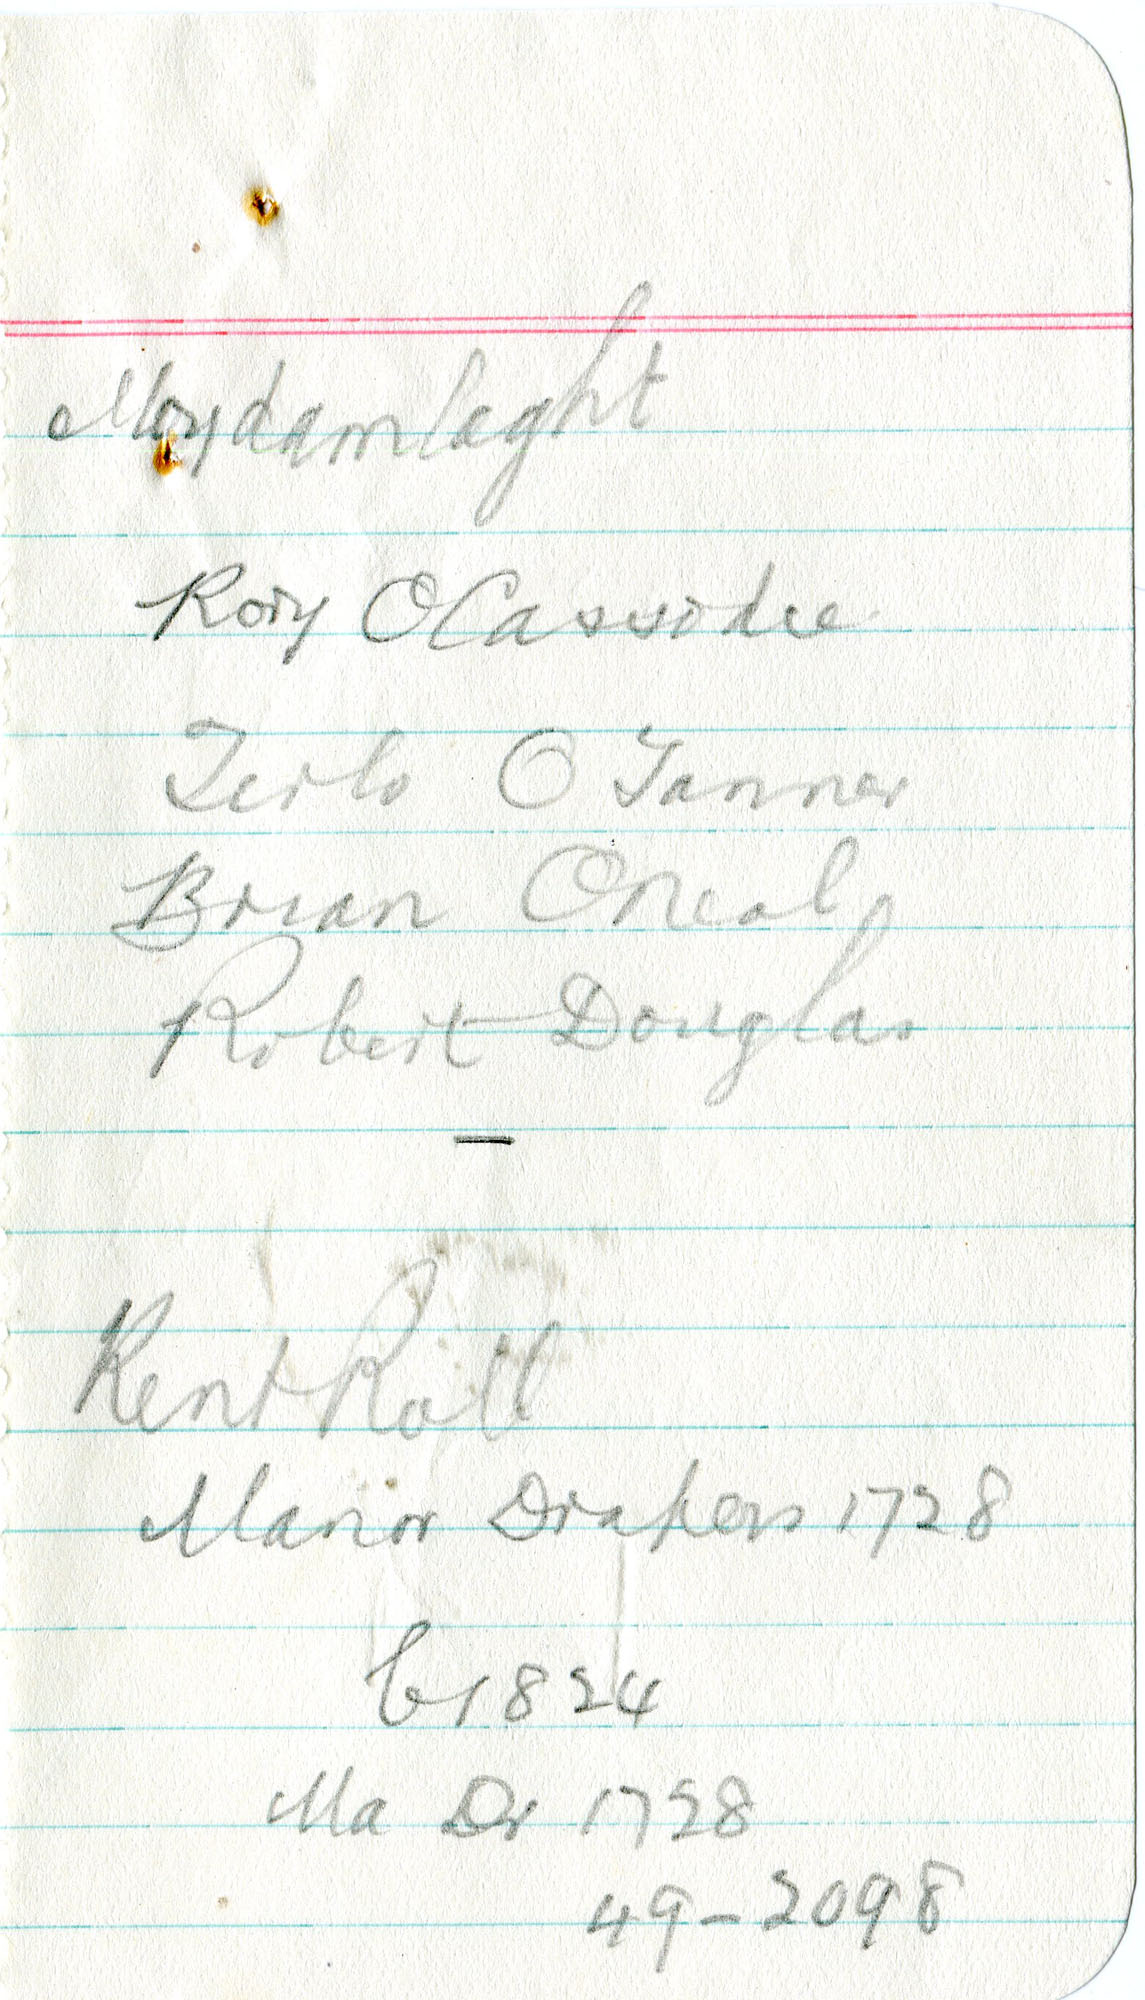 Moydamlaght
Rory OCassidie
Terlo O Tanner
Brian Oneal
Robert Douglas
—
Rent Roll
Manor Drapers 1728
1824
Ma Dr 1728
49-2098